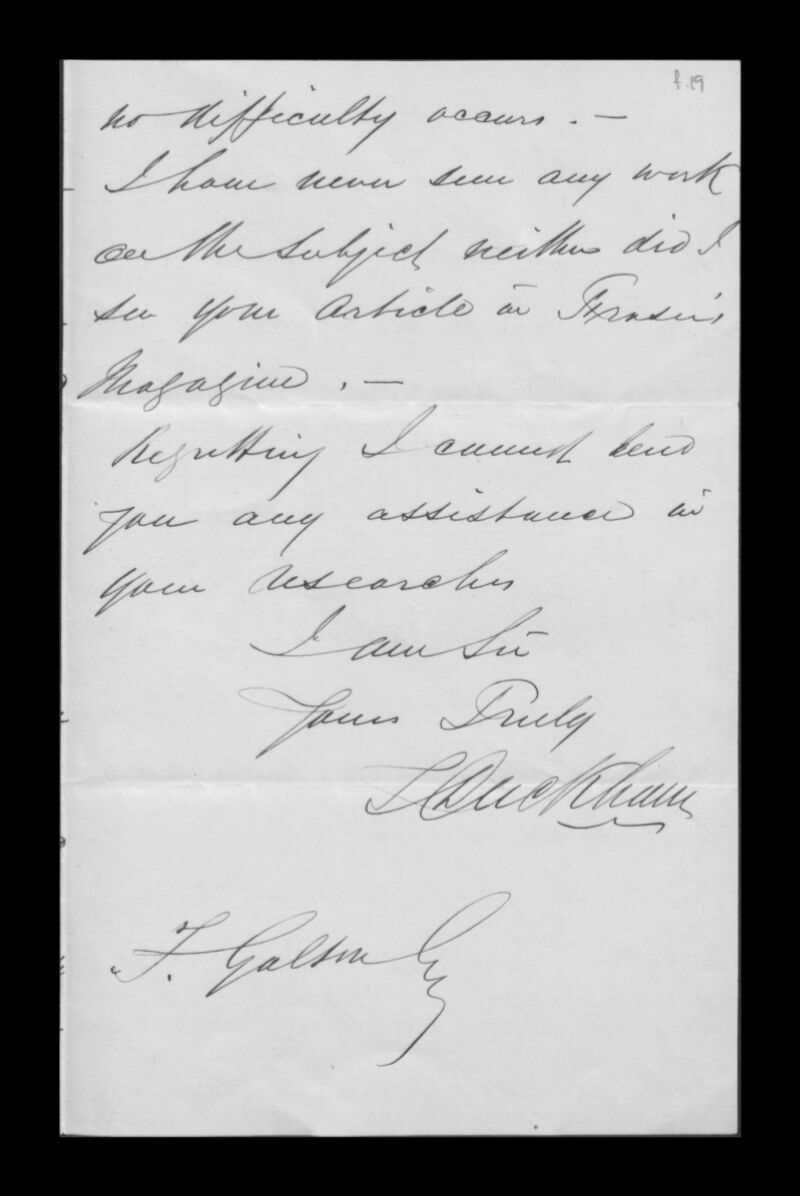 f.19
no difficulty occurs. —
I have never seen any work
on the subject neither did I
see your Article in Fraser's
Magazine. —
Regretting I cannot lend
you any assistance in
your researches
I am Sir
Yours Truly
T Duckham
F. Galton Esq